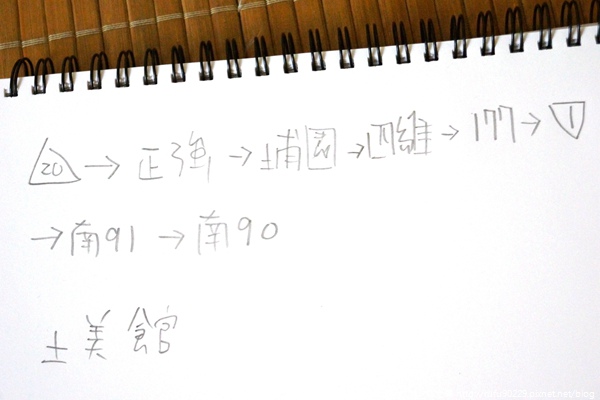 20→正強→埔園→四維→177→1
→南91→南90
土美館